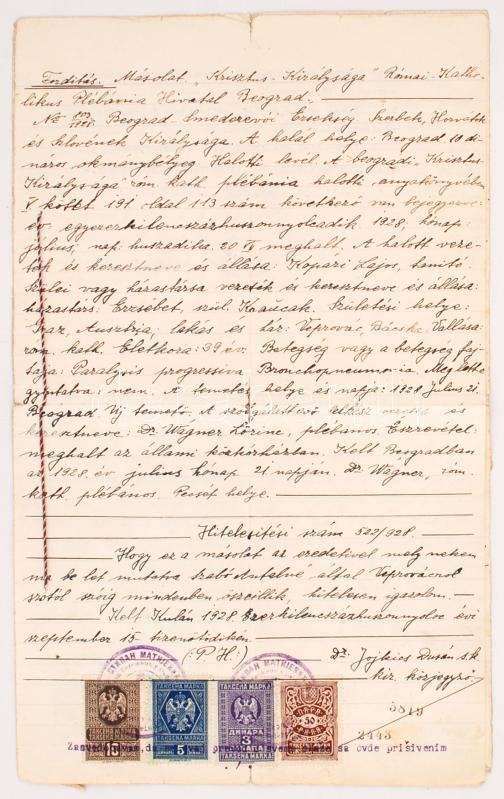 Fordítás. Másolat. „Krisztus-Királysága" Római-Katho-
likus Plébánia Hivatal Beograd.
№ Beograd Smederevói Érsekség Szerbek, Horvátok
és Slovének Királysága. A halál helye: Beograd 10 di-
náros okmánybélyeg Halotti levél. A beogradi „Krisztus-
Királysága" róm. kath. plébánia halotti anyakönyvében
V kötet 191 oldal 113 szám következő van bejegyezve:
év egyezerkilencszázhuszonnyolcadik 1928, hónap:
július, nap: huszadika. 20 meghalt. A halott veze-
ték és keresztneve és állása: Kopári Lajos, tanító.
Szülei vagy házastársa vezeték és keresztneve és állása:
házastárs: Erzsébet, szül. Születési helye:
Graz, Ausztria; lakás és ház: Veprovác, Bácska. Vallása:
róm. kath. Életkora: 39 év. Betegség vagy a betegség faj-
tája: Paralysis progressiva Bronchopneumonia. Meg lett-e
gyóntatva: nem. A temetés helye és napja: 1928 július 21,
Beograd Új temető. A lelkész vezeték és
keresztneve: Dr. Wagner Lőrinc, plébános Észrevétel:
meghalt az állami közkórházban. Kelt Beogradban
az 1928. év július hónap 21. napján. Dr. Wagner, róm.
kath. plébános. Pecsét helye.
Hitelesítési szám 522/928.
Hogy ez a másolat az eredetivel mely nekem
ma be lett mutatva Szabó Antalné által Veprovácról
szótól szóig mindenben összeillik, hitelesen igazolom.
Kelt Kulán 1928. Ezerkilencszázhuszonnyolc évi
szeptember 15 tizenötödikén.
(:P.H:) Dr. Jojkics Dusán s.k.
kir. közjegyző
3819
2443
ТАКСЕНА МАРКА
ТАКСЕНА МАРКА 5
ТАКСЕНА МАРКА ДИНАРА 3 ДИНАРА
ПАРА 50
sa ovde prišivenim